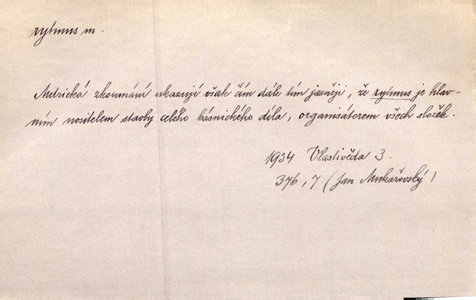 rytmus m.
Metrická zkoumání ukazují však čím dále tím jasněji, že rytmus je hlav-
ním nositelem stavby celého básnického díla, organisátorem všech složek.
1934 Vlastivěda 3.
376, 7 (Jan Mukařovský)